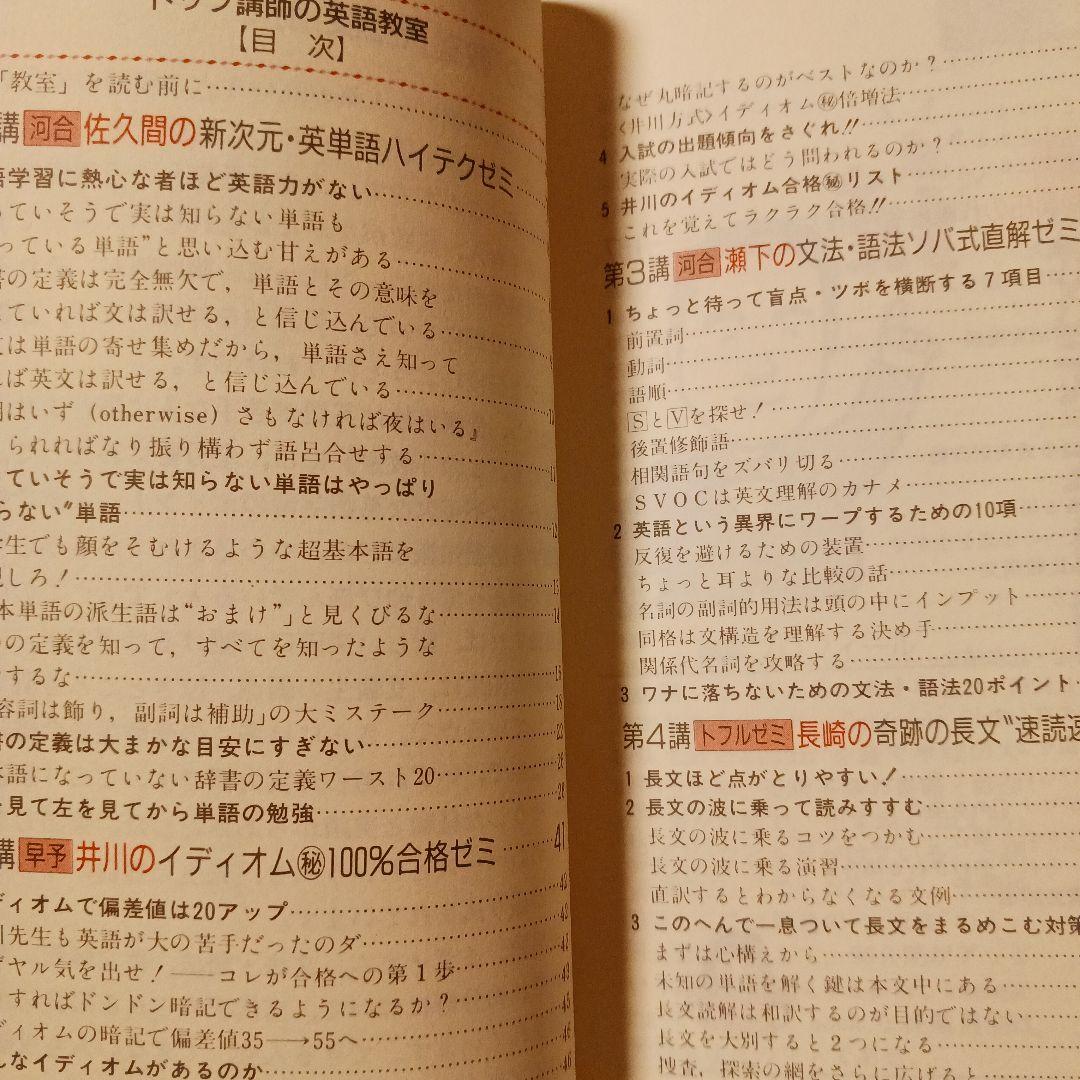 トップ講師の英語教室
【目 次】
「教室」を読む前に
講 河合 佐久間の新次元・英単語ハイテクゼミ
語学習に熱心な者ほど英語力がない
っていそうで実は知らない単語も
っている単語”と思い込む甘えがある
書の定義は完全無欠で，単語とその意味を
えていれば文は訳せる，と信じ込んでいる
は単語の寄せ集めだから，単語さえ知って
れば英文は訳せる，と信じ込んでいる
はいず（otherwise）さもなければ夜はいる』
られればなり振り構わず語呂合せする
っていそうで実は知らない単語はやっぱり
らない”単語
学生でも顔をそむけるような超基本語を
視しろ！ 13
本単語の派生語は“おまけ”と見くびるな 14
の定義を知って，すべてを知ったような
するな 15
容詞は飾り，副詞は補助」の大ミステーク 18
書の定義は大まかな目安にすぎない
本語になっていない辞書の定義ワースト20
見て左を見てから単語の勉強
講 早予 井川のイディオム㊙100％合格ゼミ 41
ディオムで偏差値は20アップ
川先生も英語が大の苦手だったのダ
ヤル気を出せ！――コレが合格への第１歩
すればドンドン暗記できるようになるか？
ディオムの暗記で偏差値35→55へ
んなイディオムがあるのか
なぜ丸暗記するのがベストなのか？
〈井川方式〉イディオム㊙倍増法
4 入試の出題傾向をさぐれ!!
実際の入試ではどう問われるのか？
5 井川のイディオム合格㊙リスト
これを覚えてラクラク合格!!
第3講 河合 瀬下の文法・語法ソバ式直解ゼミ
1 ちょっと待って盲点・ツボを横断する７項目
前置詞
動詞
語順
SとVを探せ！
後置修飾語
相関語句をズバリ切る
ＳＶＯＣは英文理解のカナメ
2 英語という異界にワープするための10項
反復を避けるための装置
ちょっと耳よりな比較の話
名詞の副詞的用法は頭の中にインプット
同格は文構造を理解する決め手
関係代名詞を攻略する
3 ワナに落ちないための文法・語法20ポイント
第4講 トフルゼミ 長崎の奇跡の長文“速読速
1 長文ほど点がとりやすい！
2 長文の波に乗って読みすすむ
長文の波に乗るコツをつかむ
長文の波に乗る演習
直訳するとわからなくなる文例
3 このへんで一息ついて長文をまるめこむ対策
まずは心構えから
未知の単語を解く鍵は本文中にある
長文読解は和訳するのが目的ではない
長文を大別すると２つになる
捜査，探索の網をさらに広げると